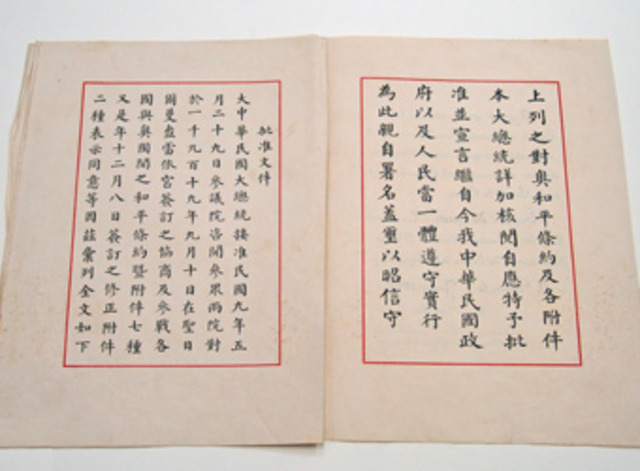 上列之對奧和平條約及各附件
本大總統詳加核閱自應特予批
准並宣言繼自今我中華民國政
府以及人民當一體遵守實行
為此親自署名蓋璽以昭信守
批准文件
大中華民國大總統接准民國九年五
月二十九日參議院咨開參眾兩院對
於一千九百十九年九月十日在聖日
爾曼盎雷依宮簽訂之協商及參戰各
國與奧國間之和平條約暨附件七種
又是年十二月八日簽訂之修正附件
二種表示同意等因茲彙列全文如下